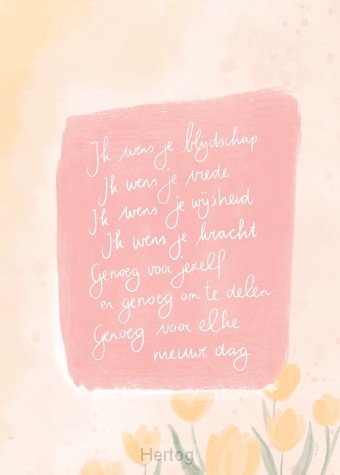 Ik wens je blijdschap
Ik wens je vrede
Ik wens je wijsheid
Ik wens je kracht
Genoeg voor jezelf
en genoeg om te delen
Genoeg voor elke
nieuwe dag
Hertog